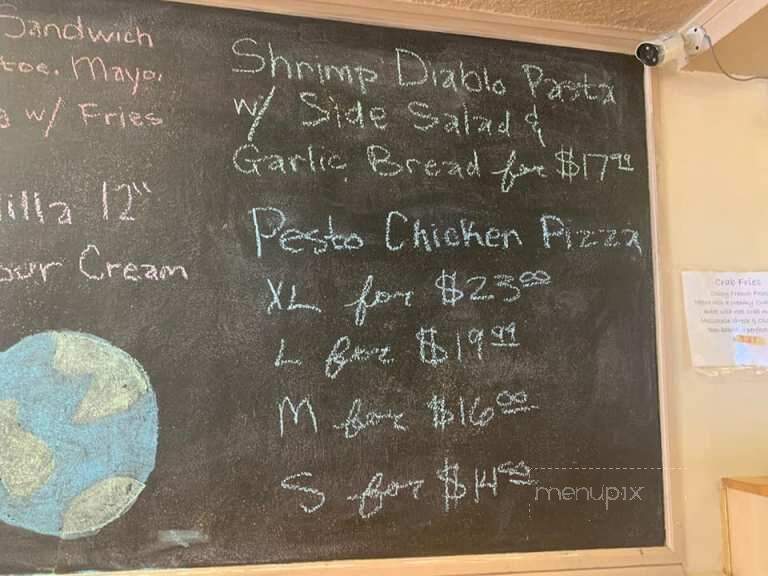 Sandwich
toe. Mayo,
w/ Fries
illa 12"
our Cream
Shrimp Diablo Pasta
w/ Side Salad &
Garlic Bread for $17.99
Pesto Chicken Pizza
XL for $23.00
L for $19.99
M for $16.00
S for $14.00
Crab Fries
menupix